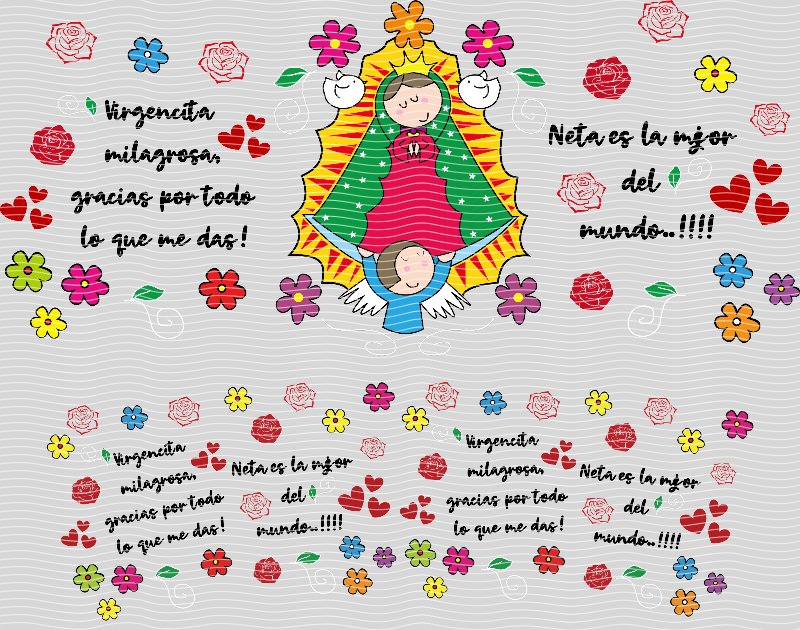 Virgencita
milagrosa,
gracias por todo
lo que me das!
Neta es la mejor
del
mundo..!!!!
Virgencita
milagrosa,
gracias por todo
lo que me das!
Neta es la mejor
del
mundo..!!!!
Virgencita
milagrosa,
gracias por todo
lo que me das!
Neta es la mejor
del
mundo..!!!!